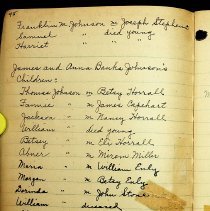 Franklin M. Johnson m Joseph Stephens
Samuel " died young
Harriet "
James and Anna Banks Johnson's
Children:
Thomas Johnson m Betsy Horrall
Fannie " m James Capehart
Jackson " m Nancy Horrall
William " died young
Betsey " m Eli Horrall
Abner " m Miriam Miller
Maria " m William Euly
Morgan " m Betsy Euly
Lorinda " m John
William " deceased